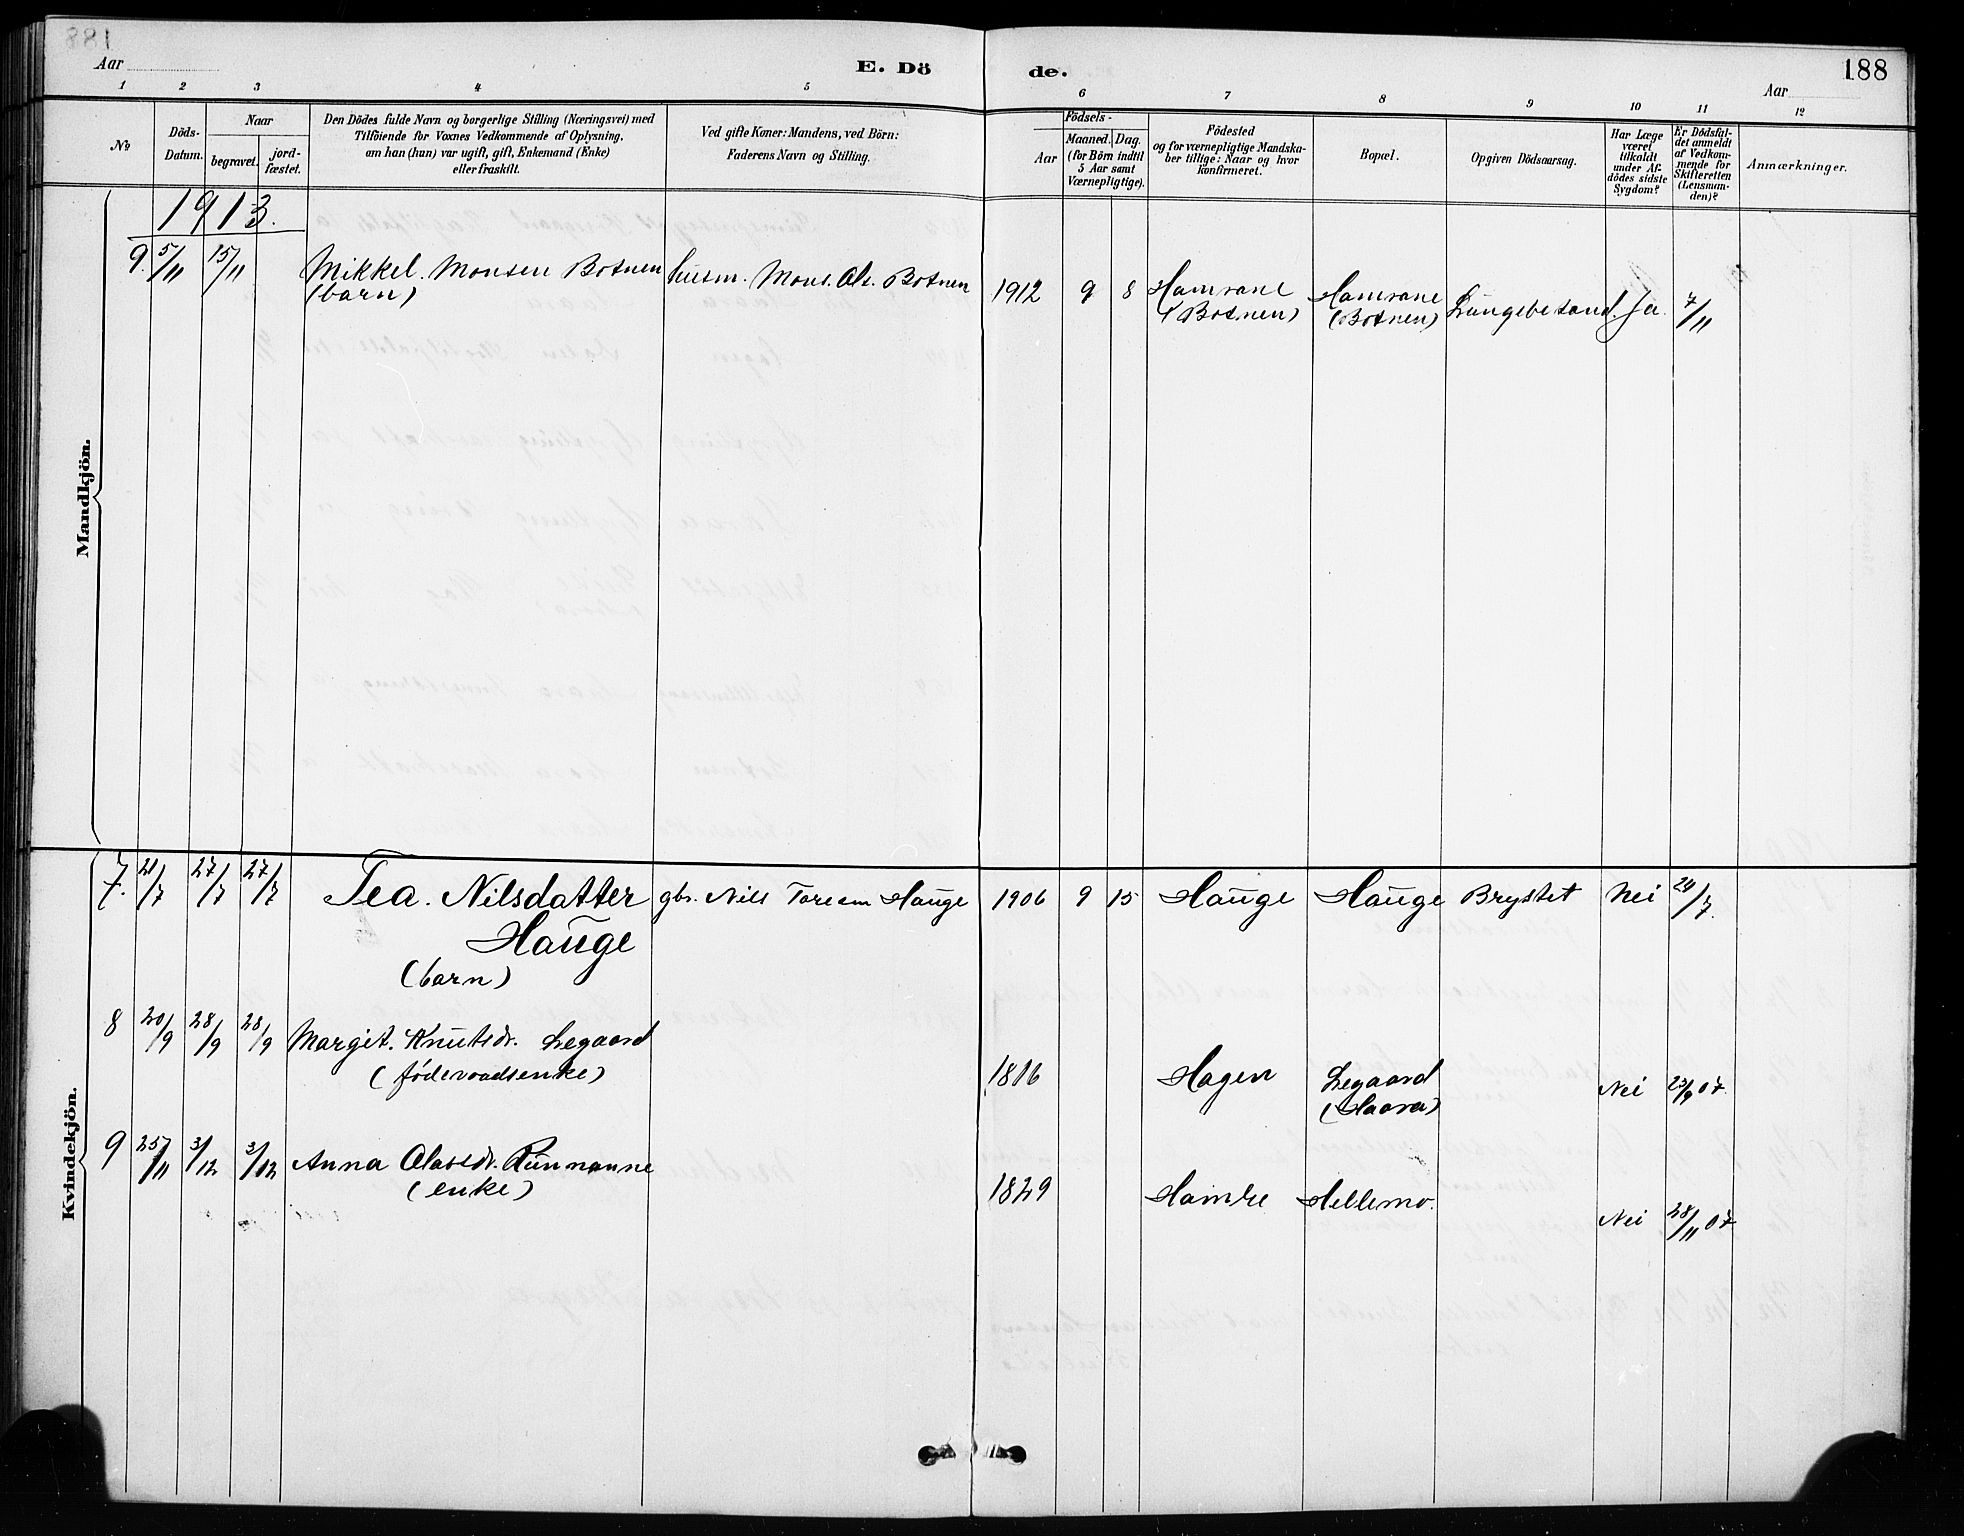 Aar
E. Dö
de.
188
Aar
1 2 3 4 5 6 7 8 9 10 11 12
No
Döds-
Datum.
Naar
begravet.
jord-
fæstet.
Den Dödes fulde Navn og borgerlige Stilling (Næringsvei) med
Tilföiende for Voxnes Vedkommende af Oplysning,
om han (hun) var ugift, gift, Enkemand (Enke)
eller fraskilt.
Ved gifte Koner: Mandens, ved Börn:
Faderens Navn og Stilling.
Födsels-
Aar
Maaned. Dag.
(for Börn indtil
5 Aar samt
Værnepligtige).
Födested
og for værnepligtige Mandska-
ber tillige: Naar og hvor
konfirmeret.
Bopæl.
Opgiven Dödsaarsag.
Har Læge
været
tilkaldt
under Af-
dödes sidste
Sygdom?
Er Dödsfal-
det anmeldt
af Vedkom-
mende for
Skifteretten
(Lensman-
den)?
Anmærkninger.
Mandkjön.
1913.
9. 5/11 15/11 Mikkel. Monsen Botnen husm. Mons. Ols. Botnen 1912 9 8 Hamrane Hamrane Lungebetænd. Ja. 7/11
(barn) (Botnen) (Botnen)
Kvindekjön.
7. 21/7 27/7 27/7 Tea. Nilsdatter gbr. Nils Hauge 1906 9 15 Hauge Hauge Brystet Nei 24/7.
Hauge
(barn)
8 20/9 28/9 28/9 Margit. Knutsdr. Legaard
(födevaadsenke) 1816 Hagen Legaard Nei 23/9 07.
(Haara)
9 25/11 3/12 3/12 Anna Olavsdr.
(enke) 1829 Hamre Hellemo. Nei 28/11 07